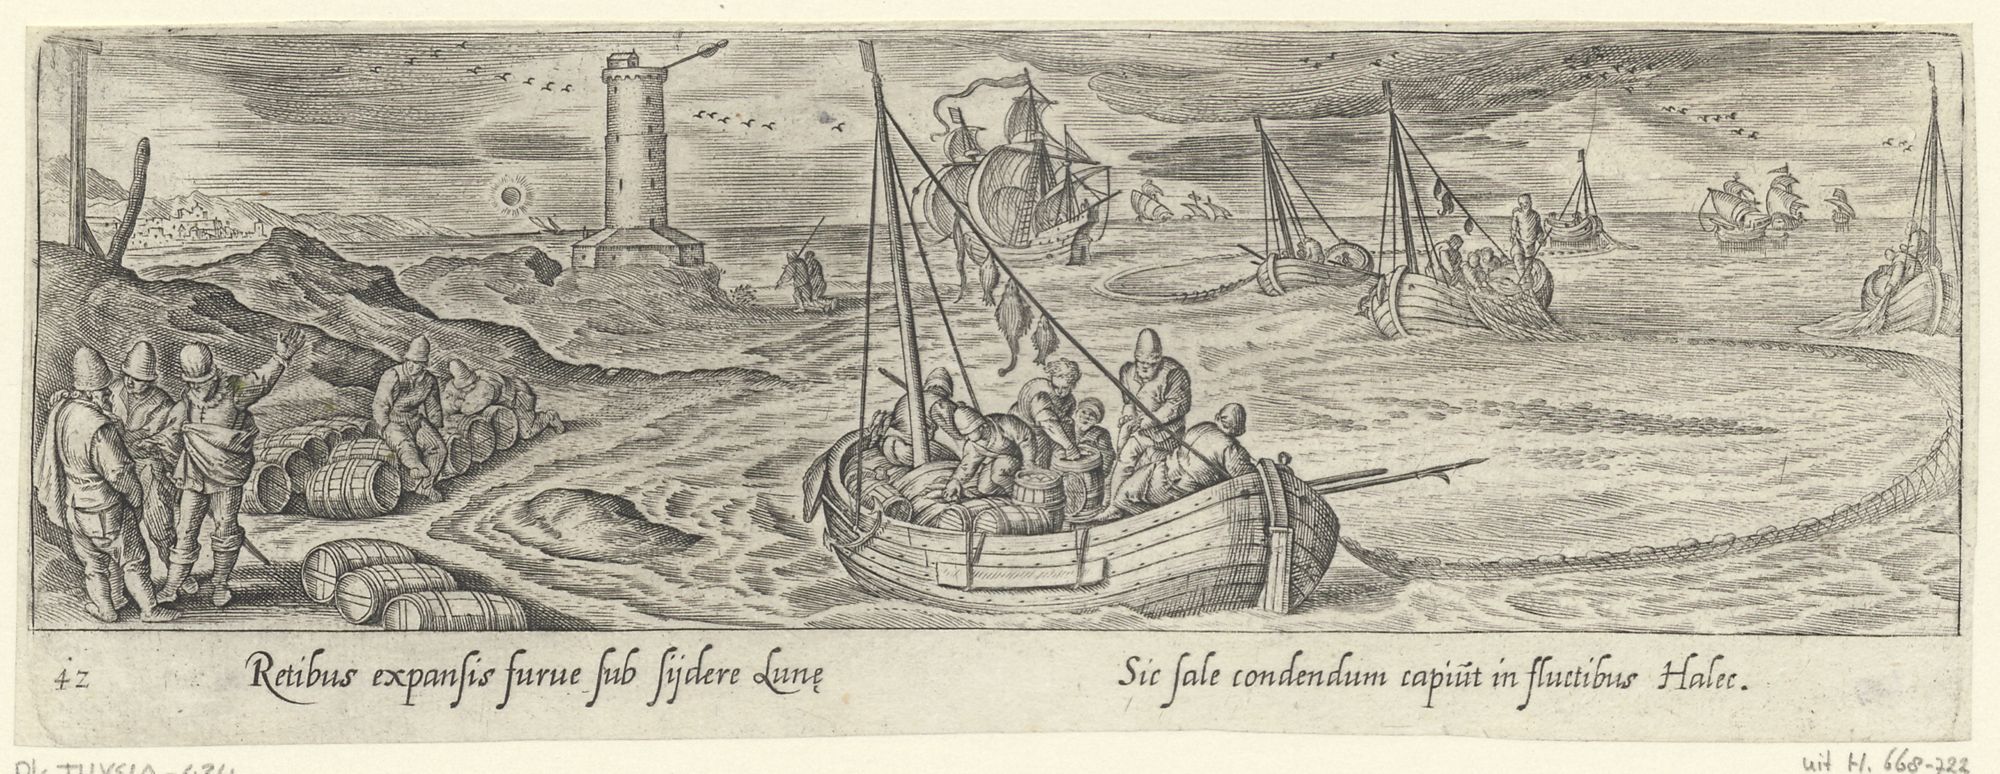 42 Retibus expansis furue sub sijdere Lunę
Sic sale condendum capiūt in fluctibus Halec.
uit H. 668-722